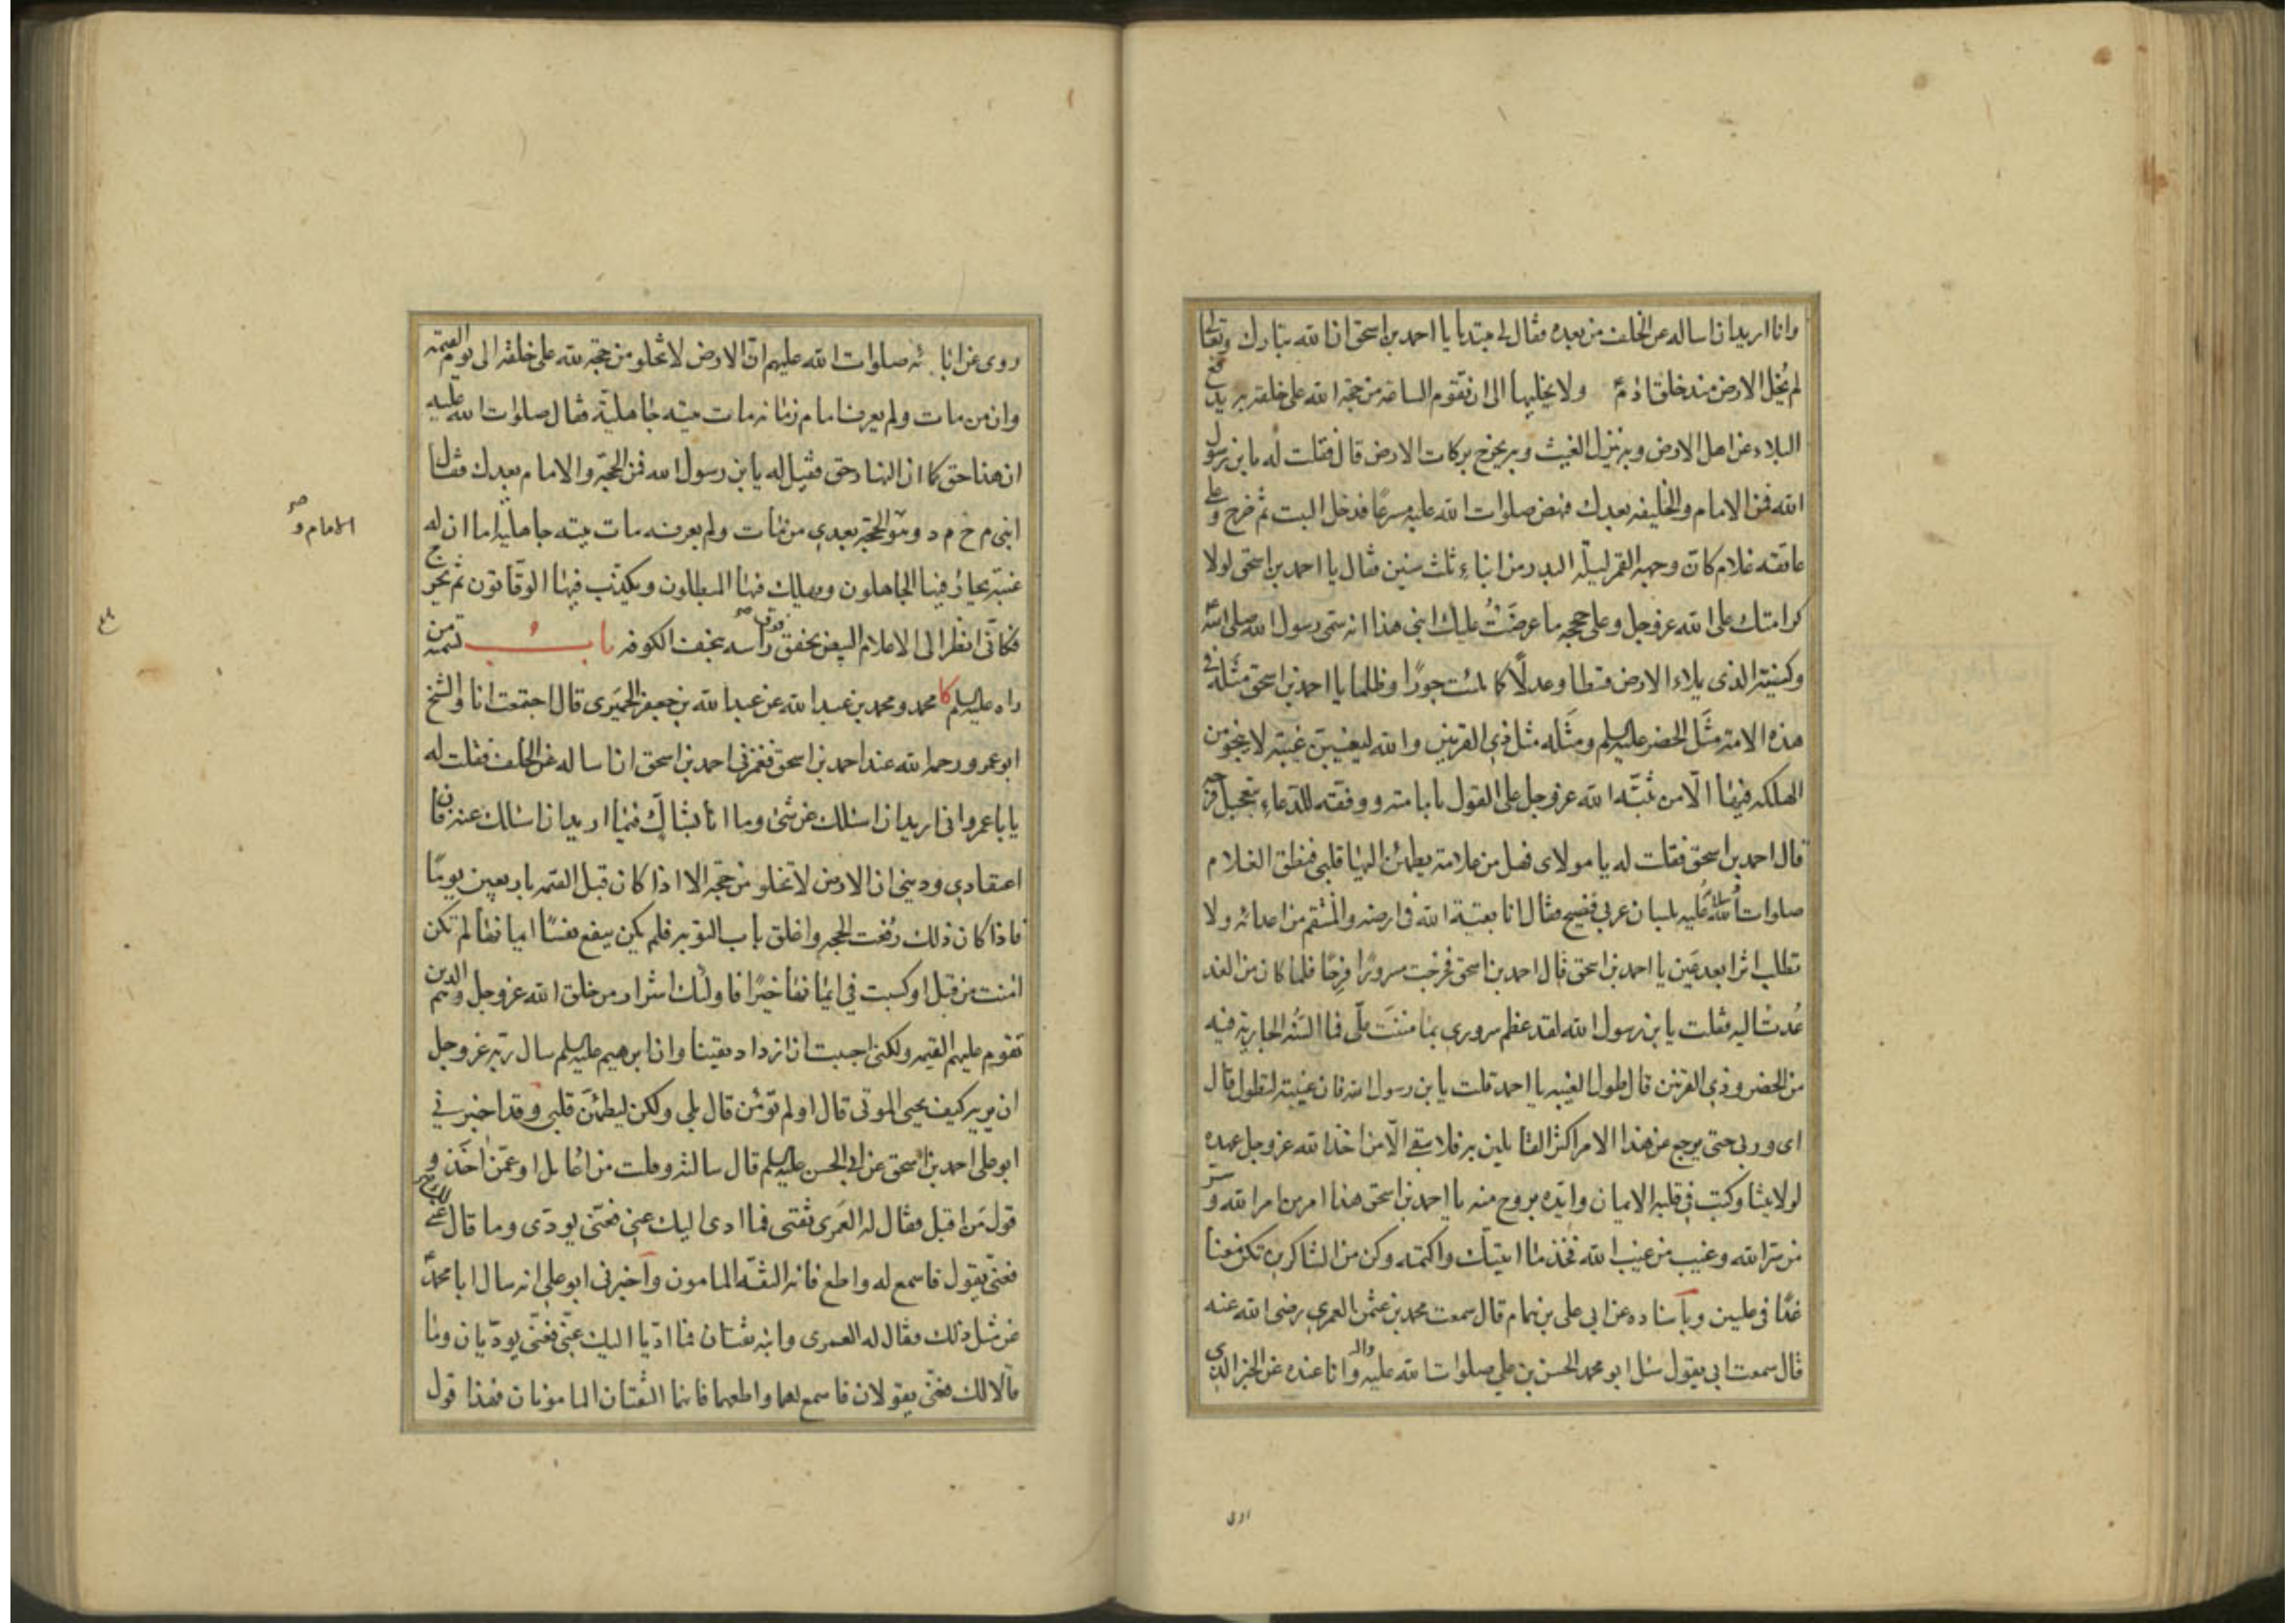 وانا اريد ان اساله عن الخلف من بعده فقال لى مبتديا يا احمد بن اسحق ان الله تبارك وتعالى
لم يُخل الارض منذ خلق ادم ولا يخليها الى ان تقوم الساعة من حجة الله على خلقه به يدفع
البلاء عن اهل الارض وبه ينزل الغيث وبه يخرج بركات الارض قال فقلت له يابن رسول
الله فمن الامام والخليفه بعدك فنهض صلوات الله عليه مسرعًا فدخل البيت ثم خرج وعلى
عاتقه غلام كانّ وجهه القمر ليلة البدر من ابناءِ ثلث سنين فقال يا احمد بن اسحق لولا
كرامتك على الله عزوجل وعلى حججه ما عرضتُ عليك ابنى هذا انه سمّى رسول الله صلى الله عليه
وكنيته الذى يملاء الارض قسطا وعدلًا كما ملئت جورًا وظلما يا احمد بن اسحق مثَله فى
هذه الامة مثَل الخضر عليه السلم ومثَله مثل ذى القرنين والله ليغيبنّ غيبة لا ينجو من
الهلكه فيها الّا من ثبّته الله عزوجل على القول بامامته ووفقه للدعاءِ بتعجيل فرجه
قال احمد بن اسحق فقلت له يا مولاى فهل من علامة يطمئن اليها قلبى فنطق الغلام
صلوات الله عليه بلسان عربى فصيح فقال انا بقية الله فى ارضه والمنتقم من اعدائه ولا
تطلب اثرا بعد عَين يا احمد بن اسحق قال احمد بن اسحق فخرجت مسرورًا فرحًا فلما كان من الغد
عُدت اليه فقلت يا بن رسول الله لقد عظم سرورى بما مننتَ علىّ فما السنّة الجارية فيه
من الخضر وذى القرنين قال طول الغيبه يا احمد قلت يا بن رسول الله فان غيبته لتطول قال
اى وربى حتى يرجع عن هذا الامر اكثر القائلين به فلا يبقى الّا من اخذ الله عزوجل عهده
لولايتنا وكتب فى قلبه الايمان وايّده بروح منه يا احمد بن اسحق هذا امر من امر الله وسرّ
من سرّ الله وغيب من غيب الله فخذ ما اتيتك واكتمه وكن من الشاكرين تكن معنا
غدًا فى عليين وبآسناده عن ابى على بن همام قال سمعت محمد بن عثمن العمرى رضى الله عنه
قال سمعت ابى يقول سئل ابو محمد الحسن بن على صلوات الله عليه واله وانا عنده عن الخبر الذى
روى عن ابائه صلوات الله عليهم انّ الارض لا تخلو من حجة لله على خلقه الى يوم القيمة
وان من مات ولم يعرف امام زمانه مات ميتة جاهليّة فقال صلوات الله عليه
ان هذا حق كما ان النهار حق فقيل له يا بن رسول الله فمن الحجّة والامام بعدك فقال
ابنى م ح م د وهو الحجّة بعدى من مات ولم يعرفه مات ميتة جاهليّة اما ان له
الامام و صح
غيبة يحار فيها الجاهلون ويهلك فيها المبطلون ويكذّب فيها الوقّاتون ثم يخرج
فكانّى انظر الى الاعلام البيض تخفق فوق راسه بنجف الكوفه باب تسمية من
راه عليه السلم كا محمد ومحمد بن عبد الله عن عبد الله بن جعفر الحميَرى قال اجتمعت انا والشيخ
ابو عمرو رحمه الله عند احمد بن اسحق فغمزنى احمد بن اسحق ان اساله عن الخلف فقلت له
يا با عمرو انى اريد ان اسئلك عن شئ وما انا بشاكّ فيما اريد ان اسئلك عنه فان
اعتقادى ودينى ان الارض لا تخلو من حجة الا اذا كان قبل القيمه باربعين يومًا
فاذا كان ذلك رُفعت الحجة واغلق باب التوبة فلم يكن ينفع نفسًا ايمانها لم تكن
امنت من قبل او كسبت فى ايمانها خيرًا فاولئك اشرار من خلق الله عزوجل وهم الذين
تقوم عليهم القيمه ولكنى احببت ان ازداد يقينا وان ابرهيم عليه السلم سال ربّه عزوجل
ان يريه كيف يحيى الموتى قال اولم تؤمن قال بلى ولكن ليطمئنّ قلبى وقد اخبرنى
ابو على احمد بن اسحق عن ابى الحسن عليه السلم قال سالته وقلت من اعامل او عمّن اخذ و
قول مَن اقبل فقال له العَمرى ثقتى فما ادى اليك عنى فعنّى يودّى وما قال لك عنى
فعنّى يقول فاسمع له واطع فانه الثقّه المامون وآخبرنى ابو على انه سال ابا محمدٍ
عن مثل ذلك فقال له العمرى وابنه ثقتان فما ادّيا اليك عنّى فعنّى يودّيان وما
قالا لك فعنّى يقولان فاسمع لهما واطعهما فانهما الثقتان المامونان فهذا قول